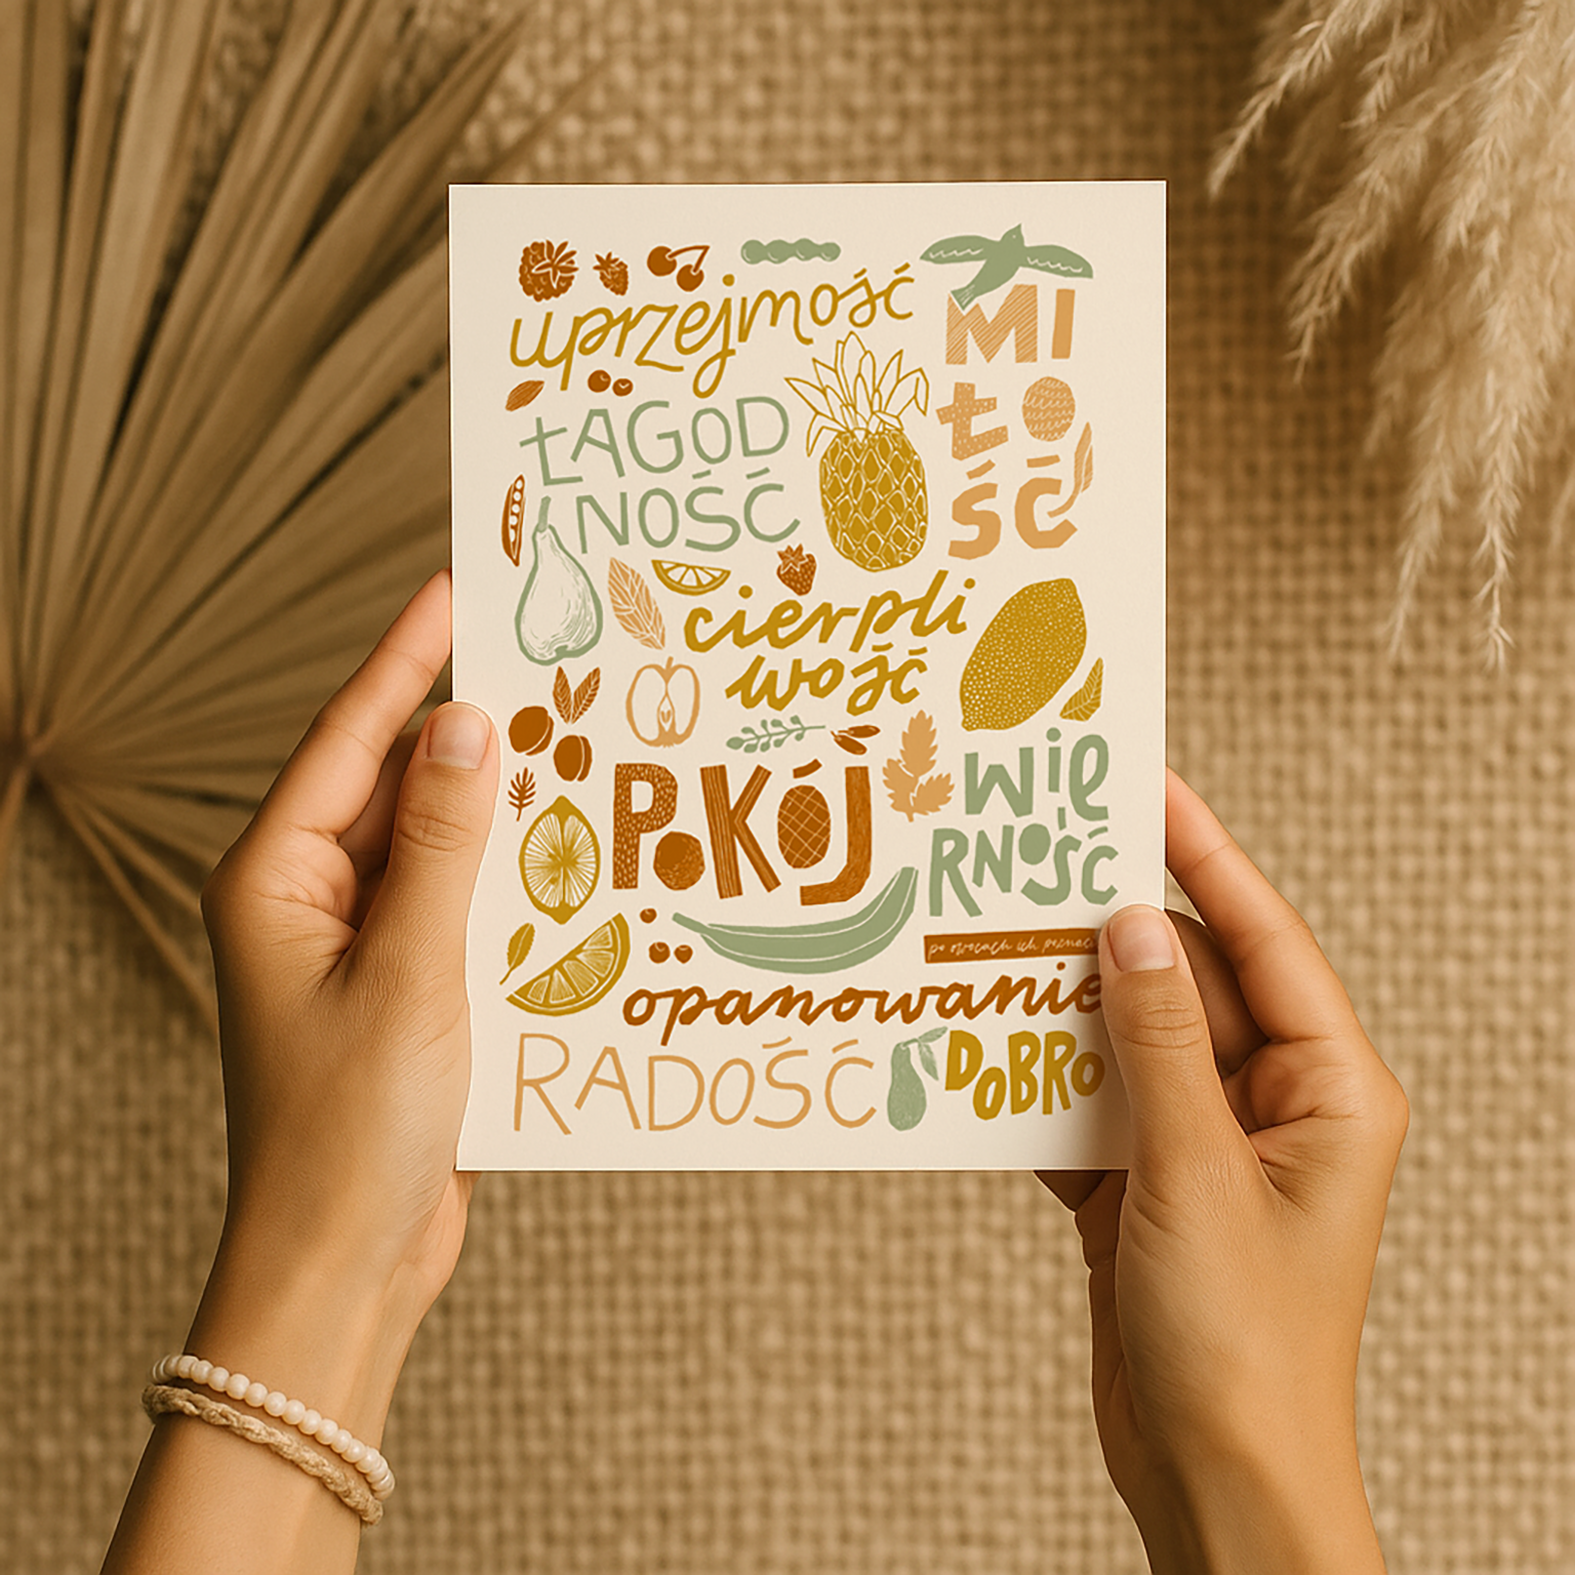 uprzejmość
MI
ŁO
ŚĆ
ŁAGOD
NOŚĆ
cierpli
wość
POKÓJ
WIĘ
RNOŚĆ
po owocach ich
opanowanie
RADOŚĆ
DOBRO